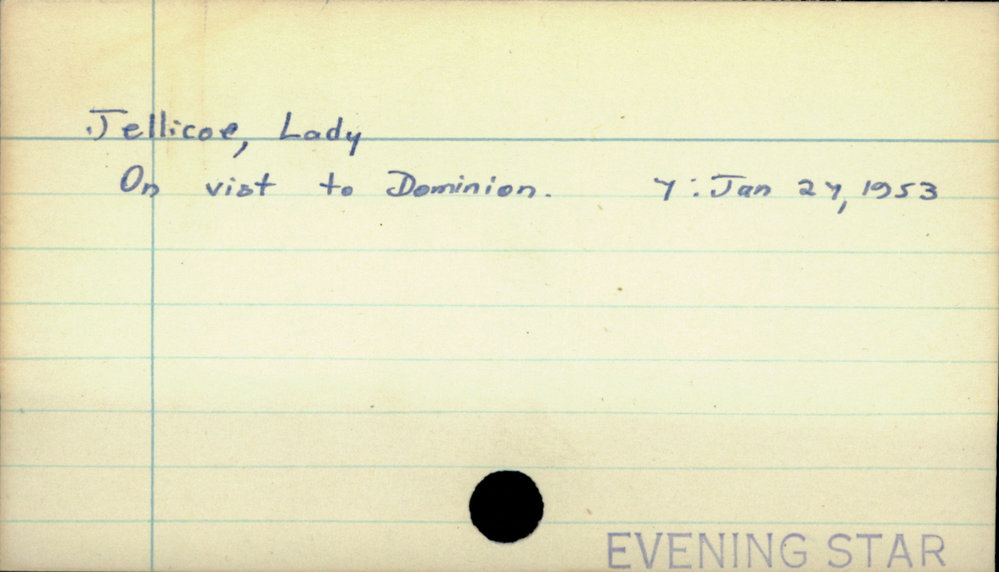 Jellicoe, Lady
On vist to Dominion. 7: Jan 27, 1953
EVENING STAR